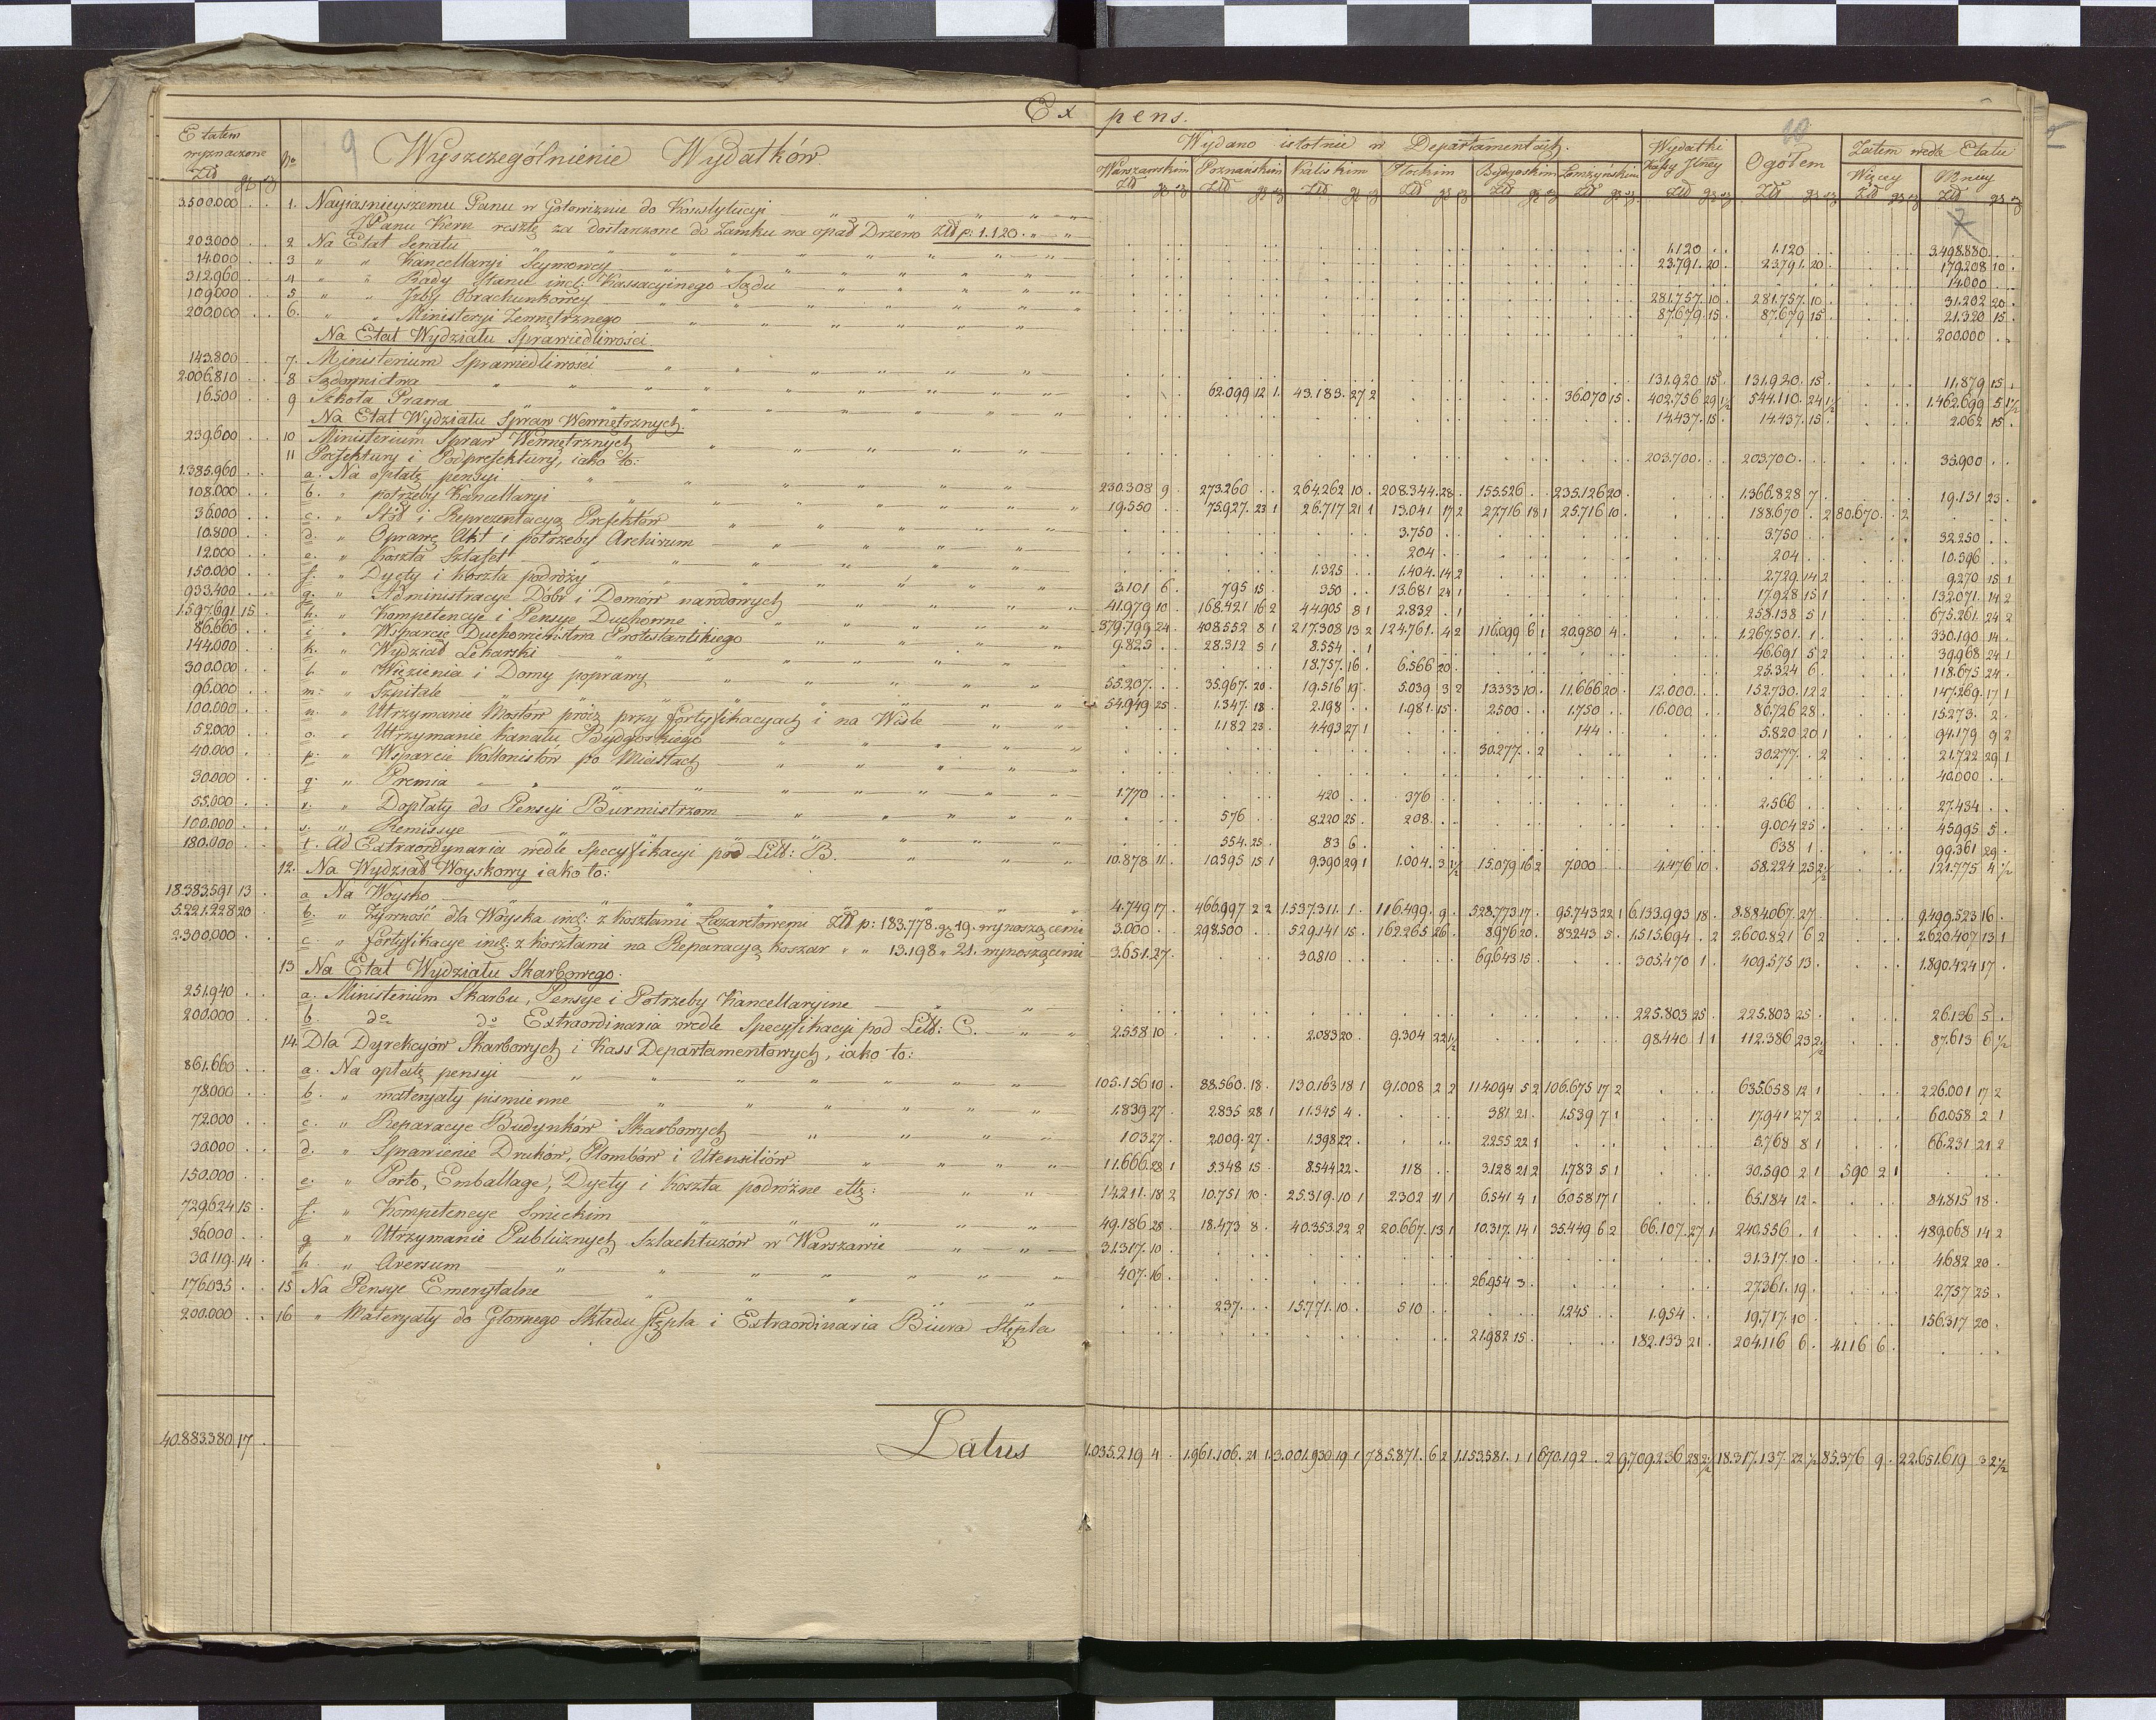 Ex pens.
9
20
Etatem wyznaczone
Złd gr sz
No
Wyszczególnienie Wydatków
Wydano istotnie w Departamentach.
Wydatki Kassy Jlney
Ogółem
Zatem wedle Etatu
Warszawskim Poznańskim Kaliskim Płockim Bydgoskim Łomżyńskim
Więcey Mniey
3.500.000 . . 1. Nayiaśnieyszemu Panu w Gotowiznie do Konstytucyi
JPanu Kern resztę za dostarzone do Zamku na opał Drzewo Złd p: 1.120. 1.120 . . 1.120 . . 3.498.880 . .
203.000 . . 2 Na Etat Senatu 23.791. 20. 23.791. 20. 179.208 10 .
14.000 . . 3 " " Kancellaryi Seymowey 14.000 . .
312.960 . . 4 " " Rady Stanu incl: Kassacyinego Sądu 281.757. 10. 281.757. 10. 31.202 20 .
109.000 . . 5 " " Jzby Obrachunkowey 87.679. 15. 87.679 15. 21.320 15 .
200.000 . . 6. " " Ministeryi Zewnętrznego 200.000 . .
Na Etat Wydziału Sprawiedliwości
143.800 . . 7. Ministerium Sprawiedliwości 131.920 15. 131.920. 15. 11.879 15 .
2.006.810 . . 8 Sądownictwa 62.099 12 1. 43.183. 27 2 36.070 15 . 402.756 29 1/2 544.110. 24 1/2 1.462.699 5 1 1/2
16.500 . . 9 Szkoła Prawa 14.437. 15. 14.437. 15. 2.062 15 .
Na Etat Wydziału Spraw Wewnętrznych.
239.600 . . 10 Ministerium Spraw Wewnętrznych 203.700 . . 203.700 . . 35.900 . .
11 Prefektury i Podprefektury, iako to:
1.385.960 . . a. Na opłatę pensyi 230.308 9 . 273.260 . . 264.262 10 . 208.344. 28 . 155.526 . . 235.126 20 . 1.366.828 7 . 19.131 23 .
108.000 . . b. " potrzeby Kancellaryi 19.550 . . 75.927. 23 1 26.717 21 1 13.041 17 2 27.716 18 1 25.716 10 . 188.670 . 2 80.670 . 2
36.000 . . c. " Stół i Reprezentacyą Prefektów 3.750 . . 3.750 . . 32.250 . .
10.800 . . d. " Oprawę Akt i potrzeby Archivum 204 . . 204 . . 10.596 . .
12.000 . . e. " Koszta Sztafet 1.325 . . 1.404. 14 2 2.729. 14 2 9.270 15 1
150.000 . . f. " Dyety i koszta podróży 3.101 6 . 795 15 . 350 . . 13.681 24 1 17.928 15 1 132.071. 14 2
933.400 . . g. " Administracye Dóbr i Domów narodowych 41.979 10 . 168.421 16 2 44.905 8 1 2.832 . 1 258.138 5 1 675.261. 24 2
1.597.691 15 . h. " Kompetencye i Pensye Duchowne 379.799 24 . 408.552 8 1 217.308 13 2 124.761. 4 2 116.099 6 1 20.980 4 . 1.267.501. 1 . 330.190 14 .
86.660 . . i. " Wsparcie Duchowieństwa Protestantskiego 9.825 . . 28.312 5 1 8.554 . 1 46.691 5 2 39.968 24 1
144.000 . . k. " Wydział Lekarski 18.757. 16 . 6.566 20 . 25.324 6 . 118.675 24 .
300.000 . . l. " Więzienia i Domy poprawy 55.207 . . 35.967. 20 . 19.516 19 . 5.039 3 2 13.333 10 . 11.666 20 . 12.000 . . 152.730. 12 2 147.269. 17 1
96.000 . . m. " Szpitale 54.949 25 . 1.347. 18 . 2.198 . . 1.981. 15 . 2.500 . . 1.750 . . 16.000 . . 80.726 28 . 15.273. 2 .
100.000 . . n. " Utrzymanie Mostów prócz przy fortyfikacyach i na Wiśle 1.182 23 . 4.493 27 1 144 . . 5.820 20 1 94.179 9 2
52.000 . . o. " Utrzymanie kanału Bydgoskiego 30.277 . 2 30.277 . 2 21.722 29 1
40.000 . . p. " Wsparcie Kollonistów po Miastach 40.000 . .
30.000 . . q. " Premia 1.770 . . 420 . . 376 . . 2.566 . . 27.434 . .
55.000 . . r. " Dopłaty do Pensyi Burmistrzom 576 . . 8.220 25 . 208 . . 9.004 25 . 45.995 5 .
100.000 . . s. " Remissye 554. 25 . 83 6 . 638 1 . 99.361 29 .
180.000 . . t. Ad Extraordynaria wedle Specyfikacyi pod Litt: B. 10.878 11 . 10.395 15 1 9.390 29 1 1.004. 3 1/2 15.079 16 2 7.000 . . 4.476 10 . 58.224 25 2 1/2 121.775 4 1/2
12. Na Wydział Woyskowy iako to:
18.383.591 13 . a Na Woysko 4.749 17 . 466.997 2 2 1.537.311. 1 . 116.499. 9 . 528.773 17 . 95.743 22 1 6.133.993 18 . 8.884.067. 27 . 9.490.523 16 .
5.221.228 20 . b. " Żywność dla Woyska incl: z kosztami Lazaretowemi Złd p: 183.778. gr 19. wynoszącemi 3.000 . . 298.500 . . 529.141 15 . 162.265 26 . 8.976 20 . 83.243 5 . 1.515.694 . 2 2.600.821 6 2 2.620.407 13 1
2.300.000 . . c. " fortyfikacye incl: z kosztami na Reparacyą koszar " " 13.198 " 21. wynoszącemi 3.651. 27 . 30.810 . . 69.643 15 . 305.470 1 . 409.575 13 . 1.890.424 17 .
13 Na Etat Wydziału Skarbowego.
251.940 . . a. Ministerium Skarbu, Pensye i Potrzeby Kancellaryine 225.803 25 . 225.803 25 . 26.136 5 .
200.000 . . b. do do Extraordinaria wedle Specyfikacyi pod Litt: C. 2.558 10 . 2.083 20 . 9.304 22 1/2 98.440 1 1 112.386 23 2 1/2 87.613 6 1/2
14. Dla Dyrekcyów Skarbowych i Kass Departamentowych, iako to:
861.660 . . a. Na opłatę pensyi 105.156 10 . 88.560. 18 . 130.163 18 1 91.008 2 2 114.094 5 2 106.675 17 2 635.658 12 1 226.001 17 2
78.000 . . b. " materyały piśmienne 1.839 27 . 2.835 28 1 11.345 4 . 381 21 . 1.539 7 1 17.941 27 2 60.058 2 1
72.000 . . c. " Reparacye Budynków Skarbowych 103 27 . 2.009. 27 . 1.398 22 . 2.255 22 1 5.768 8 1 66.231 21 2
30.000 . . d. " Sprawienie Druków, Plombów i Utensiliów 11.666 28 1 5.348 15 . 8.544 22 . 118 . . 3.128 21 2 1.783 5 1 30.590 2 1 590 2 1
150.000 . . e. " Porto, Emballage, Dyety i koszta podróżne etz: 14.211. 18 2 10.751 10 . 25.319. 10 1 2.302 11 1 6.541 4 1 6.058 17 1 65.184 12 . 84.815 18 .
729.624 15 . f. " Kompetencye Smieckim 49.186 28 . 18.473 8 . 40.353. 22 2 20.667. 13 1 10.317. 14 1 35.449 6 2 66.107. 27 1 240.556 . 1 489.068 14 2
36.000 . . g " Utrzymanie Publicznych Szlachtuzów w Warszawie 31.317. 10 . 31.317. 10 . 4.682 20 .
30.119. 14 . h. " Aversum 407. 16 . 26.954 3 . 27.361. 19 . 2.757 25 .
176.035 . . 15 Na Pensye Emerytalne 237 . . 15.771. 10 . 510 . . 1.245 . . 1.954 . . 19.717. 10 . 156.317 20 .
200.000 . . 16 " Materyały do Głównego Składu Stępla i Extraordinaria Biura Stępla 21.982 15 . 182.133 21 . 204.116 6 . 4.116 6 .
40.883.380 17 . Latus 1.035.219 4 . 1.961.106. 21 1. 3.001.930 19 1 785.871. 6 2 1.153.581. 1 1 670.192 . 2 9.709.236 28 2 1/2 18.317.137. 22 1/2 85.376 9 . 22.651.619 3 2 1/2